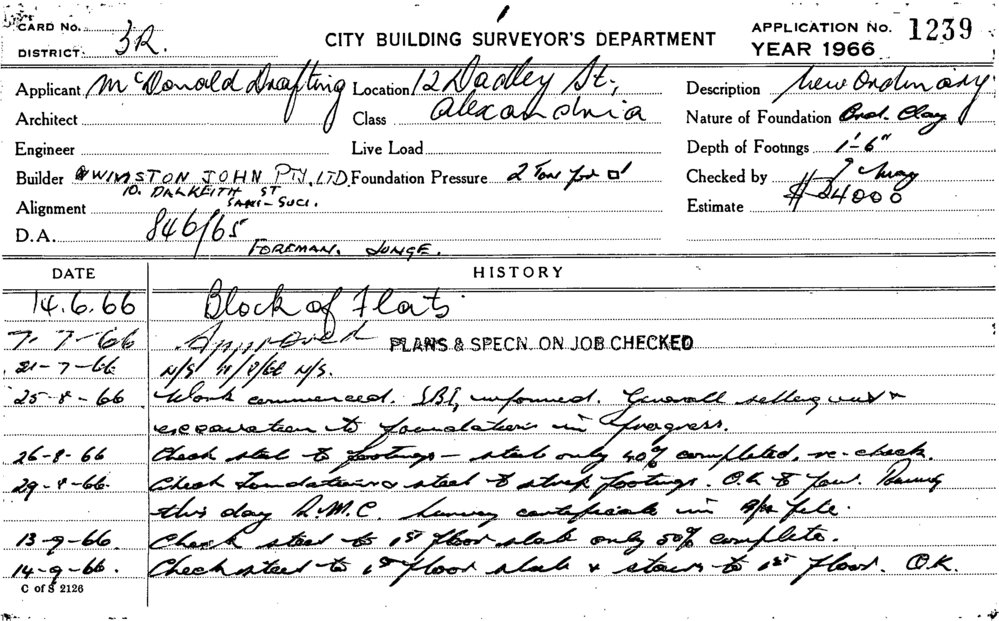 CARD No.
DISTRICT: 3R.
CITY BUILDING SURVEYOR'S DEPARTMENT
APPLICATION No. 1239
YEAR 1966
Applicant McDonald Drafting Location 12 Dadley St, Description New Ordinary
Architect Class Alexandria Nature of Foundation Ord. Clay
Engineer Live Load Depth of Footngs 1'-6"
Builder WINSTON JOHN PTY. LTD. Foundation Pressure 2 Tons per □' Checked by
10. DALKEITH ST
SANS-SUCI.
Alignment Estimate $24000
D.A. 846/65
FOREMAN. JUNGE.
DATE HISTORY
14.6.66 Block of Flats
7-7-66 Approved PLANS & SPECN. ON JOB CHECKED
21-7-66 N/S 4/8/66 N/S.
25-8-66 Work commenced. informed. Generall setting out &
excavation to foundations in progress.
26-8-66 Check steel to footings - steel only 40% completed, re-check.
29-8-66. Check Foundations & steel to strip footings. O.K to pour.
this day R.M.C. certificate in file.
13-9-66. Check steel to 1st floor slab only 50% complete.
14-9-66. Check steel to 1st floor slab & stairs to 1st floor. O.K.
C of S 2126